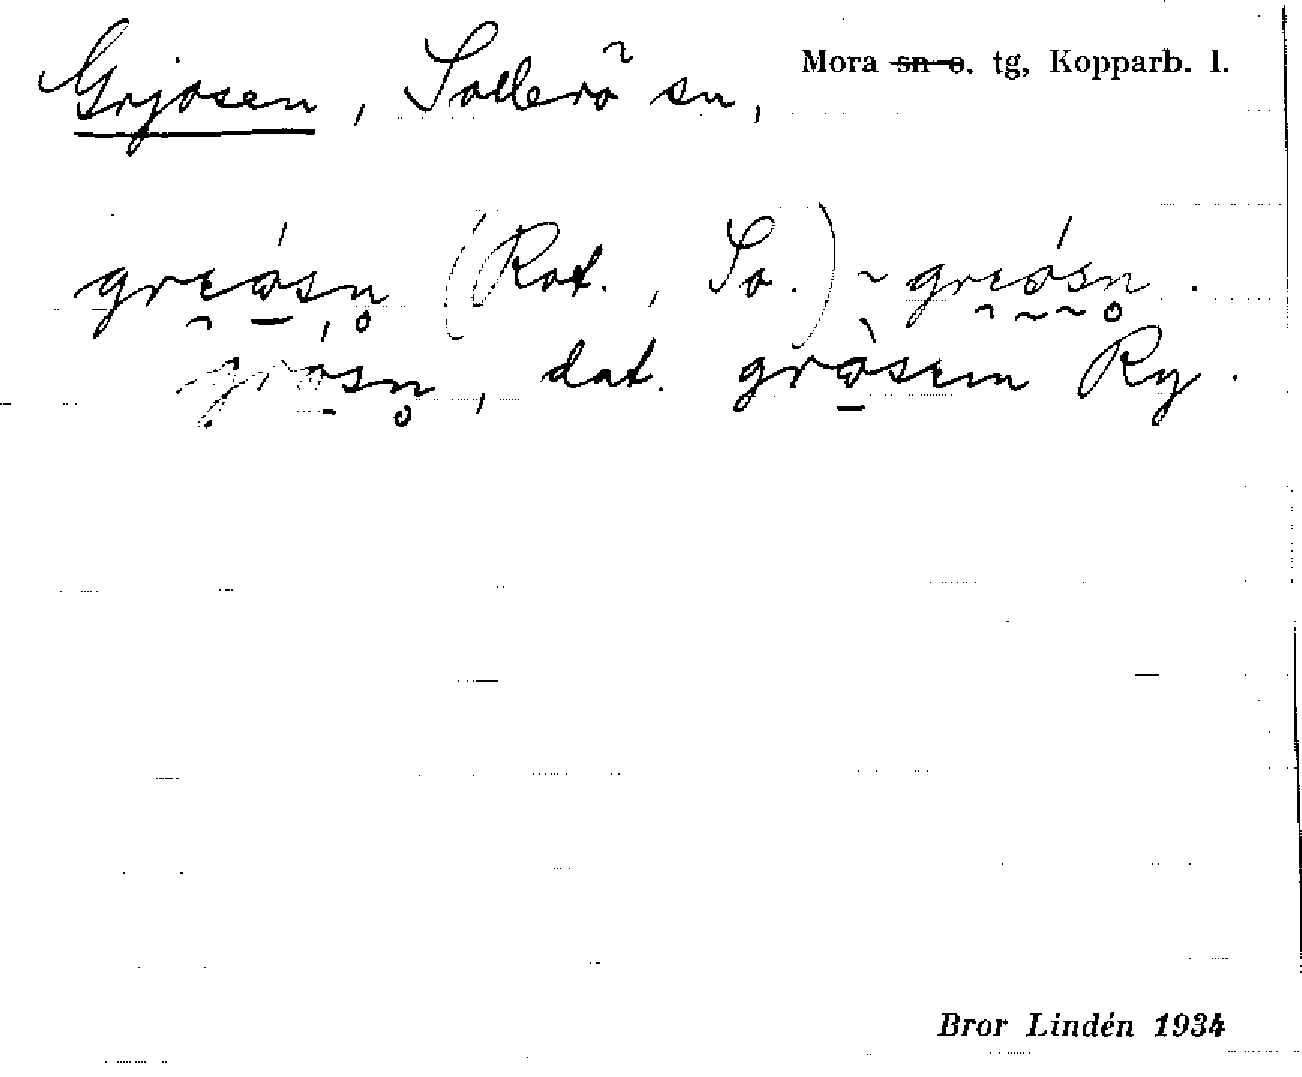 Grjosen, Sollerö sn, Mora sn o. tg, Kopparb. l.
grɩǿsn̥ (Rot., So.) ~ grɩǿsn̥.
grǿsn̥, dat. grø̀sɛm Ry.
Bror Lindén 1934